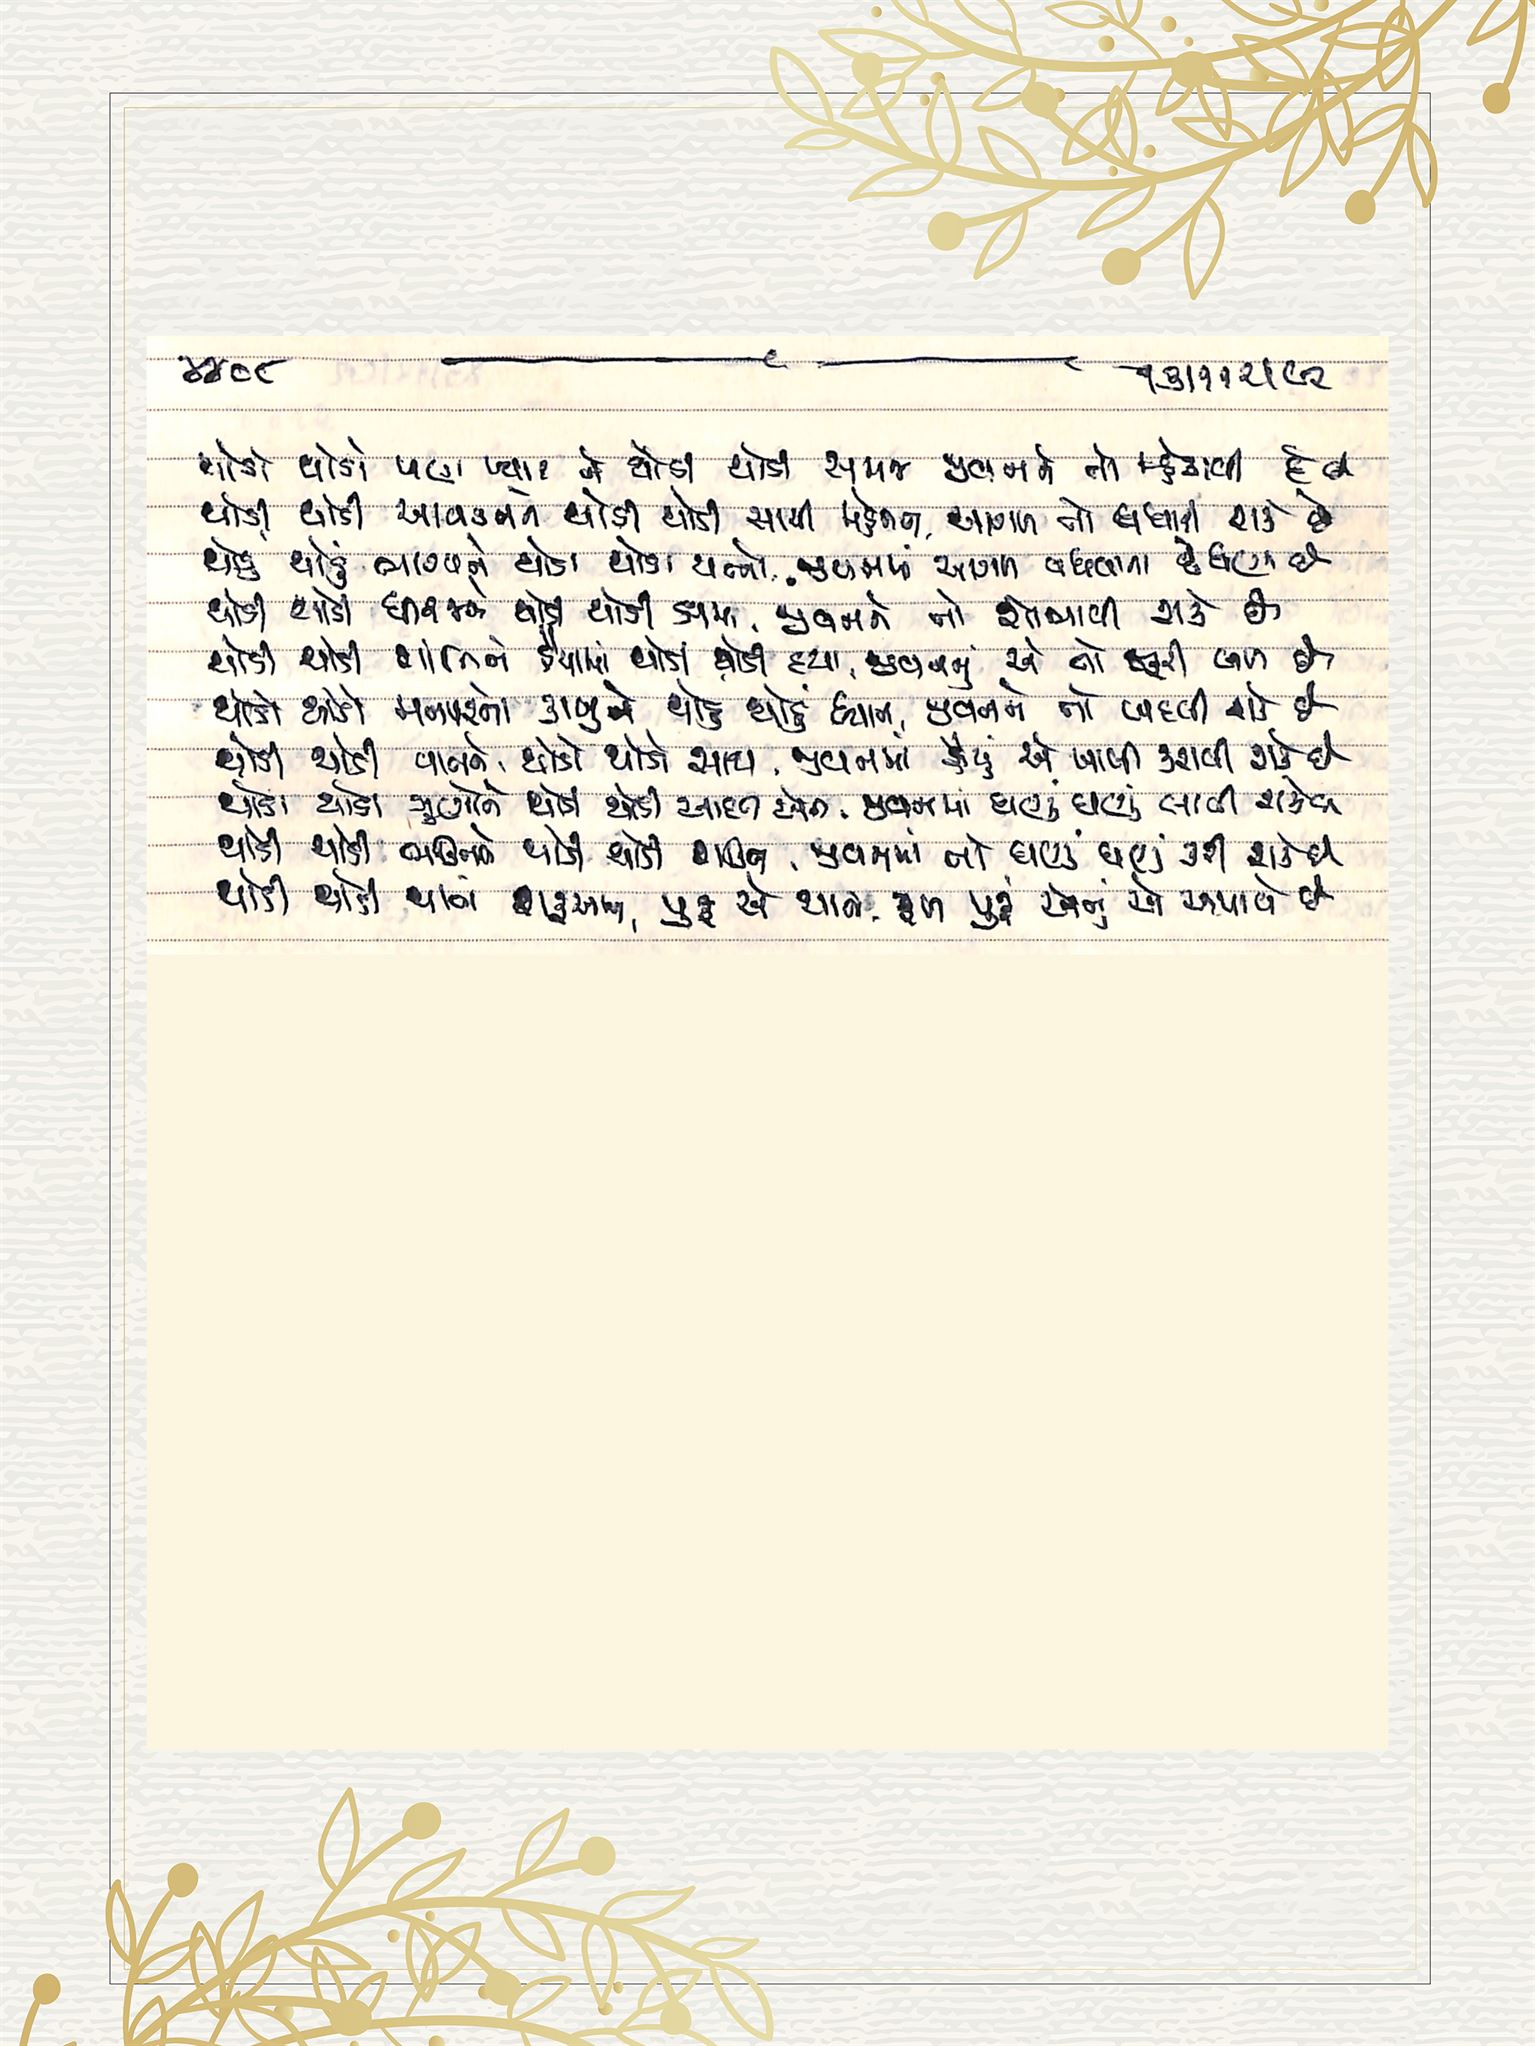 ૪૪૦૮ ૧૩।૧૧૨।૯૨
થોડો થોડો પણ પ્યાર ને થોડી થોડી સમજ જીવનને તો મ્હેકાવી દે છે
થોડી થોડી આવડતને થોડી થોડી સાચી મહેનત, આગળ તો વધારી શકે છે
થોડું થોડું ભાગ્યને થોડા થોડા યત્નો.. જીવનમાં આગળ વધવાના
થોડી થોડી ધીરજને થોડી થોડી ક્ષમા, જીવનને તો શોભાવી શકે છે
થોડી થોડી શાંતિને હૈયામાં થોડી થોડી દયા, જીવનનું એ તો ખરી બળ છે
થોડો થોડો મનપરનો કાબુને થોડું થોડું ધ્યાન, જીવનને તો બદલી શકે છે
થોડી થોડી વાતને, થોડો થોડો સાથ, જીવનમાં હૈયું એ ખાલી કરાવી શકે છે
થોડા થોડા ગુણોને થોડી થોડી આદત જીવનમાં ઘણું ઘણું લાવી શકે છે
થોડી થોડી ભક્તિને થોડી થોડી શક્તિ, જીવનમાં તો ઘણું ઘણું કરી શકે છે
થોડી થોડી થાતાં શરૂઆત, પુરૂ એ થાતે, ફળ પુરૂં એનું એ અપાવે છે